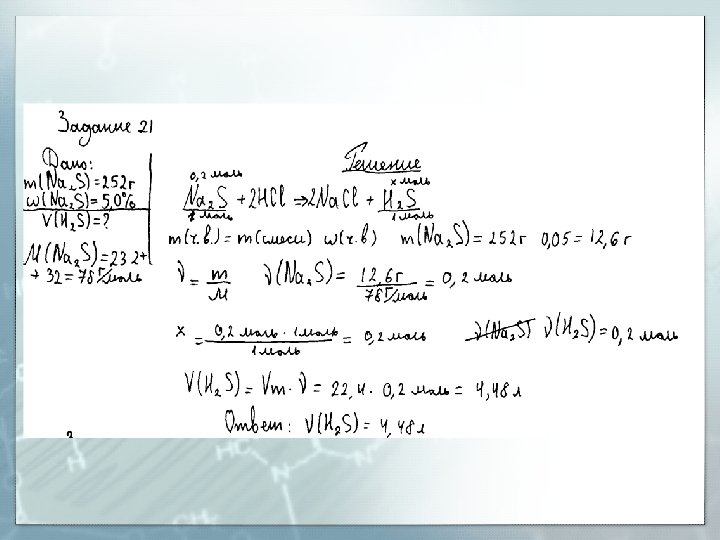 Задание 21
Дано:
m(Na₂S)=252г
ω(Na₂S)=5,0%
V(H₂S)=?
M(Na₂S)=23·2+
+32=78 г/моль
Решение
0,2 моль x моль
Na₂S + 2HCl ⇒ 2NaCl + H₂S
1 моль 1 моль
m(ч.в.) = m(смеси) ω(ч.в) m(Na₂S) = 252г 0,05 = 12,6 г
ν = m/M ν(Na₂S) = 12,6г/78г/моль = 0,2 моль
x = 0,2 моль · 1 моль/1 моль = 0,2 моль ν(Na₂S) ν(H₂S) = 0,2 моль
V(H₂S) = Vm · ν = 22,4 · 0,2 моль = 4,48 л
Ответ: V(H₂S) = 4,48 л